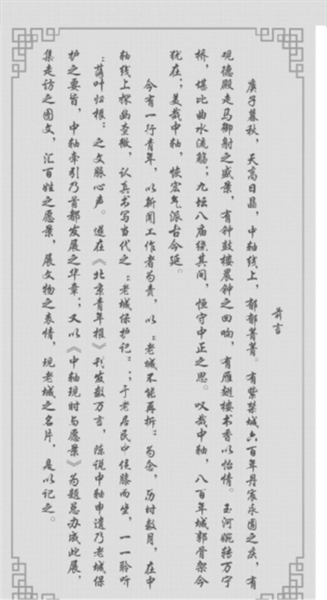 前言
庚子暮秋,天高日晶,中轴线上,郁郁菁菁。有紫禁城六百年丹宸永固之庆,有
观德殿走马御射之盛景,有钟鼓楼晨钟之回响,有雁翅楼书香以怡情。玉河蜿转万宁
桥,堪比曲水流觞;九坛八庙绕其间,恒守中正之思。叹哉中轴,八百年城郭骨架今
犹在;美哉中轴,恢宏气派古今延。
今有一行青年,以新闻工作者为责,以“老城不能再拆”为念,历时数月,在中
轴线上探幽查微,认真书写当代之“老城保护记”;于老居民中促膝而坐,一一聆听
“落叶归根”之文脉心声。遂在《北京青年报》刊发数万言,陈说中轴申遗乃老城保
护之要旨,中轴牵引乃首都发展之华章;又以《中轴现时与愿景》为题总办成此展,
集走访之图文,汇百姓之愿景,展文物之表情,现老城之名片,是以记之。